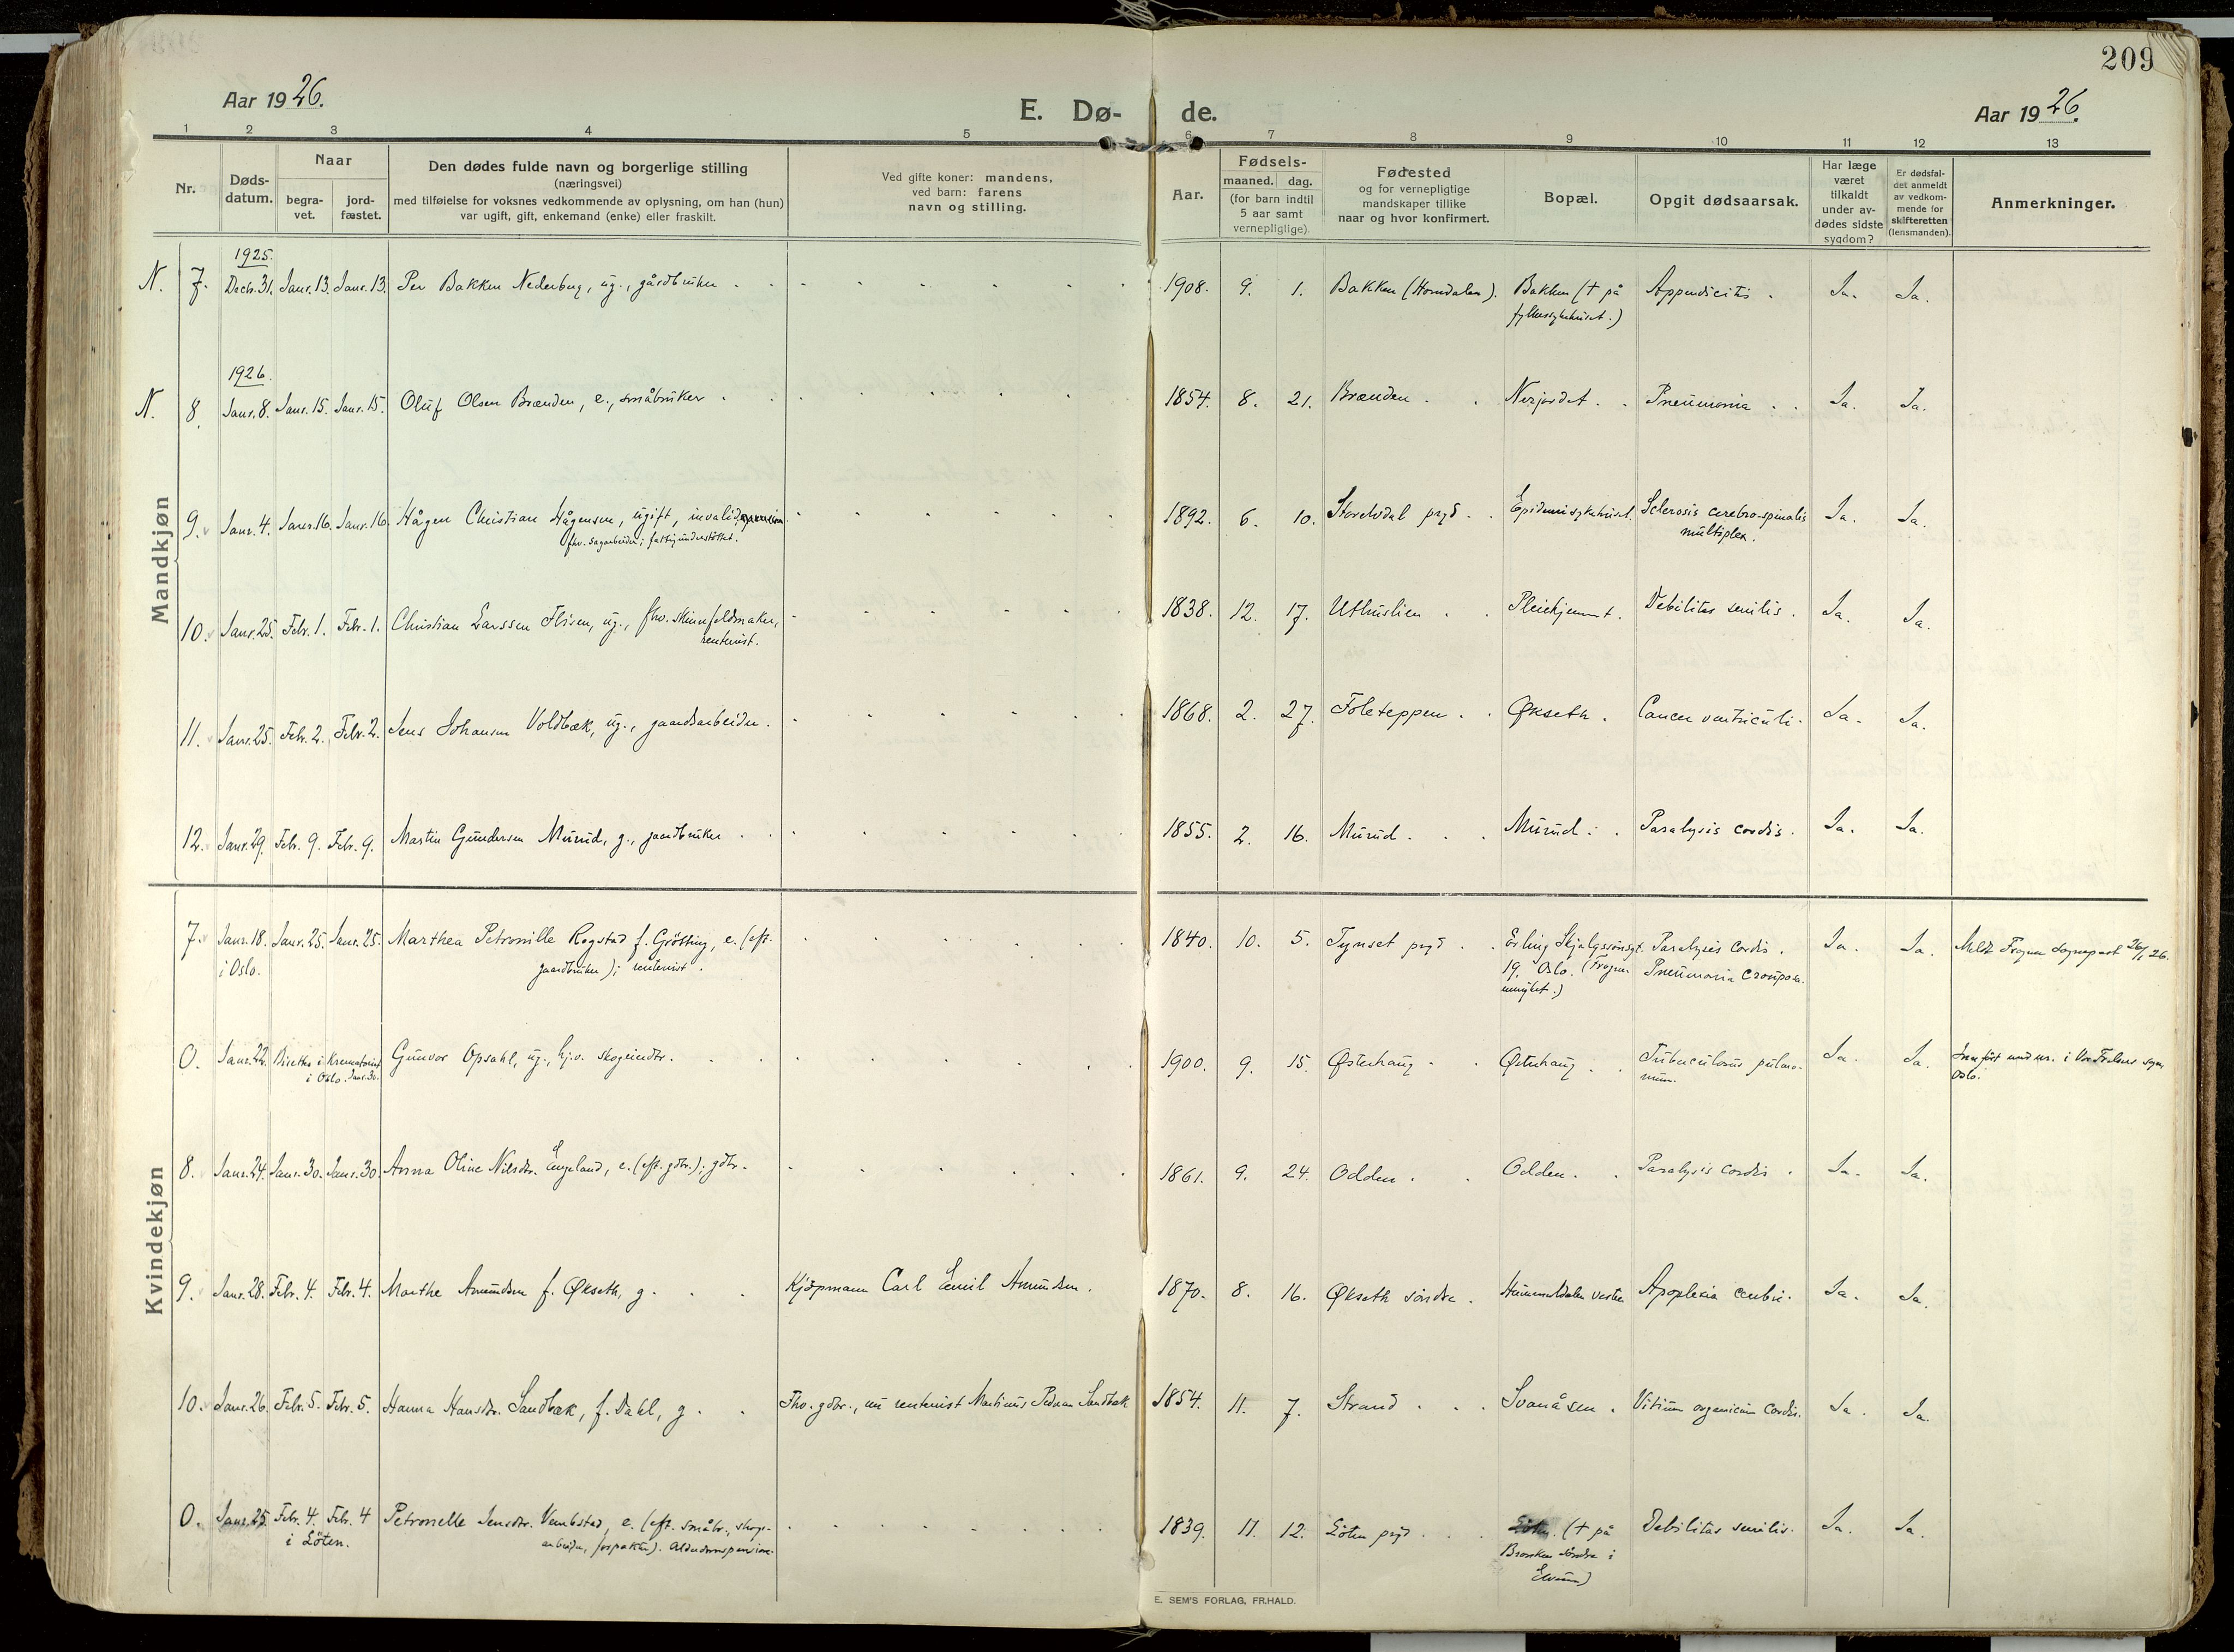 209
Aar 1926.
E. Dø- de.
Aar 1926.
1 2 3 4 5 6 7 8 9 10 11 12 13
Nr.
Døds-
datum.
Naar
begra-
vet.
jord-
fæstet.
Den dødes fulde navn og borgerlige stilling
(næringsvei)
med tilføielse for voksnes vedkommende av oplysning, om han (hun)
var ugift, gift, enkemand (enke) eller fraskilt.
Ved gifte koner: mandens,
ved barn: farens
navn og stilling.
Aar.
Fødsels-
maaned. dag.
(for barn indtil
5 aar samt
vernepligtige)
Fødested
og for vernepligtige
mandskaper tillike
naar og hvor konfirmert.
Bopæl.
Opgit dødsaarsak.
Har læge
været
tilkaldt
under av-
dødes sidste
sygdom?
Er dødsfal-
det anmeldt
av vedkom-
mende for
skifteretten
(lensmanden).
Anmerkninger.
Mandkjøn
1925.
N. 7. Decbr. 31. Janr. 13. Janr. 13. Per Bakken Nederberg, ug., gårdbruker 1908. 9. 1. Bakken (Horndalen). Bakken († på Appendicitis. Ja. Ja.
fylkessykehuset.)
1926.
N. 8. Janr. 8. Janr. 15. Janr. 15. Oluf Olsen Brænden, e., småbruker 1854. 8. 21. Brænden Nerjordet Pneumonia Ja. Ja.
9. Janr. 4. Janr. 16. Janr. 16. Hågen Christian Hågensen, ugift, invalid 1892. 6. 10. Storelvdal prgd. Epidemisykehuset. Sclerosis cerebro-spinalis Ja. Ja.
fhv. sagarbeider; fattigunderstøttet. multiplex.
10. Janr. 25. Febr. 1. Febr. 1. Christian Larssen Flisen, ug., fhv. skinnfeldmaker, 1838. 12. 17. Uthuslien Pleiehjemmet. Debilitas senilis. Ja. Ja.
rentenist.
11. Janr. 25. Febr. 2. Febr. 2. Jens Johansen Voldbæk, ug., gaardsarbeider. 1868. 2. 27. Foleteppen Økseth. Cancer ventriculi. Ja. Ja.
12. Janr. 29. Febr. 9. Febr. 9. Martin Gundersen Murud, g., gaardbruker 1855. 2. 16. Murud Murud Paralysis cordis. Ja. Ja.
Kvindekjøn
7. Janr. 18. Janr. 25. Janr. 25. Marthea Petronille Rogstad f. Grötting, e. (eft. 1840. 10. 5. Tynset prgd. Erling Skjalgssønsgt. Paralysis cordis. Ja. Ja. Meldt Frogner sogneprest 26/1 26.
i Oslo. gaardbruker); rentenist. 19. Oslo. (Frogner Pneumonia crouposa.
menighet.)
0. Janr. 22. Bisettes i Krematoriet Gunvor Opsahl, ug., hj.v. skogeierdtr. 1900. 9. 15. Østerhaug Østerhaug Tuberculosis pulmo- Ja. Ja. Innført under nr. i Vor Frelsers sogn,
i Oslo. Janr. 30. num. Oslo.
8. Janr. 24. Janr. 30. Janr. 30. Anna Oline Nilsdtr. Engeland, e. (eft. gdbr.); gdbr. 1861. 9. 24. Odden Odden. Paralysis cordis Ja. Ja.
9. Janr. 28. Febr. 4. Febr. 4. Marthe Amundsen f. Økseth, g. Kjøpmann Carl Emil Amundsen. 1870. 8. 16. Økseth söndre Hummeldalen vestre Apoplexia cerebri. Ja. Ja.
10. Janr. 26. Febr. 5. Febr. 5. Hanna Hansdtr. Sandbæk, f. Dahl, g. Fhv. gdbr., nu rentenist Martinus Pedersen Sandbæk 1854. 11. 7. Strand Svanåsen. Vitium organicum cordis. Ja. Ja.
0. Janr. 25. Febr. 4. Febr. 4 Petronelle Jensdtr. Vembstad, e. (eft. småbr., skogs- 1839. 11. 12. Löten prgd. Löten. († på Debilitas senilis. Ja. Ja.
i Löten. arbeider, forpakter). Alderdomspension. söndre i
Elverum)
E. SEM'S FORLAG, FR.HALD.